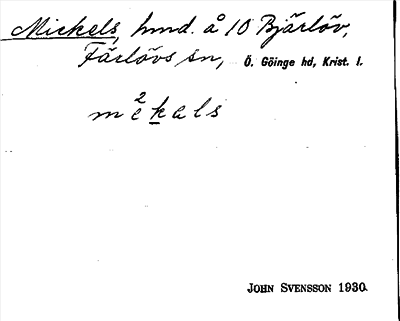 Mickels, hmd. å 10 Bjärlöv,
Färlövs sn, Ö. Göinge hd, Krist. l.
2
mekals
JOHN SVENSSON 1930.